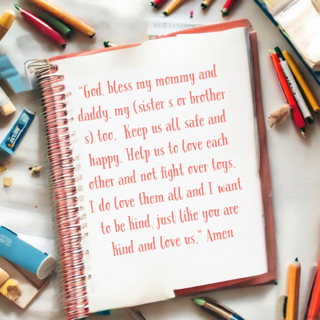 “God, bless my mommy and
daddy, my (sister s or brother
s) too. Keep us all safe and
happy. Help us to love each
other and not fight over toys.
I do love them all and I want
to be kind, just like you are
kind and love us.” Amen